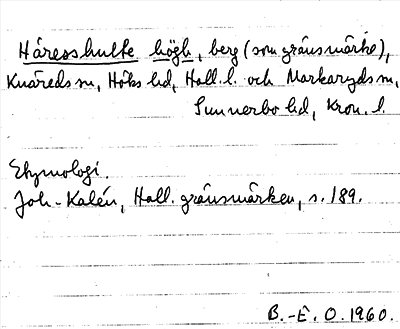 Håreoshulte högh, berg (som gränsmärke),
Knäreds sn, Höks hd, Hall. l. och Markaryds sn,
Sunnerbo hd, Kron. l.
Etymologi.
Joh. Kalén, Hall. gränsmärken, s. 189.
B.-E. O. 1960.